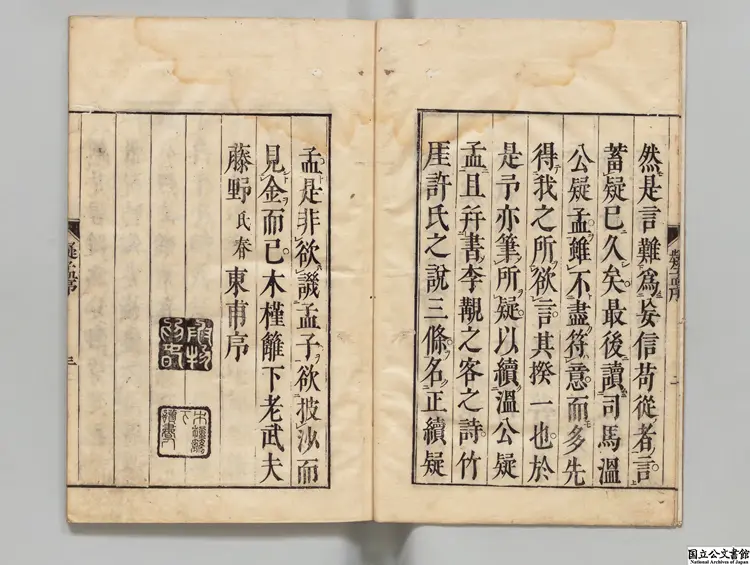 然是言難爲妄信苟從者言
蓄疑已久矣最後讀司馬溫
公疑孟雖不盡符意而多先
得我之所欲言其揆一也於
是予亦筆所疑以續溫公疑
孟且幷書李覯之客之詩竹
厓許氏之說三條名正續疑
孟是非欲譏孟子欲披沙而
見金而已木槿籬下老武夫
藤野氏春東甫序
二
三
国立公文書館
National Archives of Japan